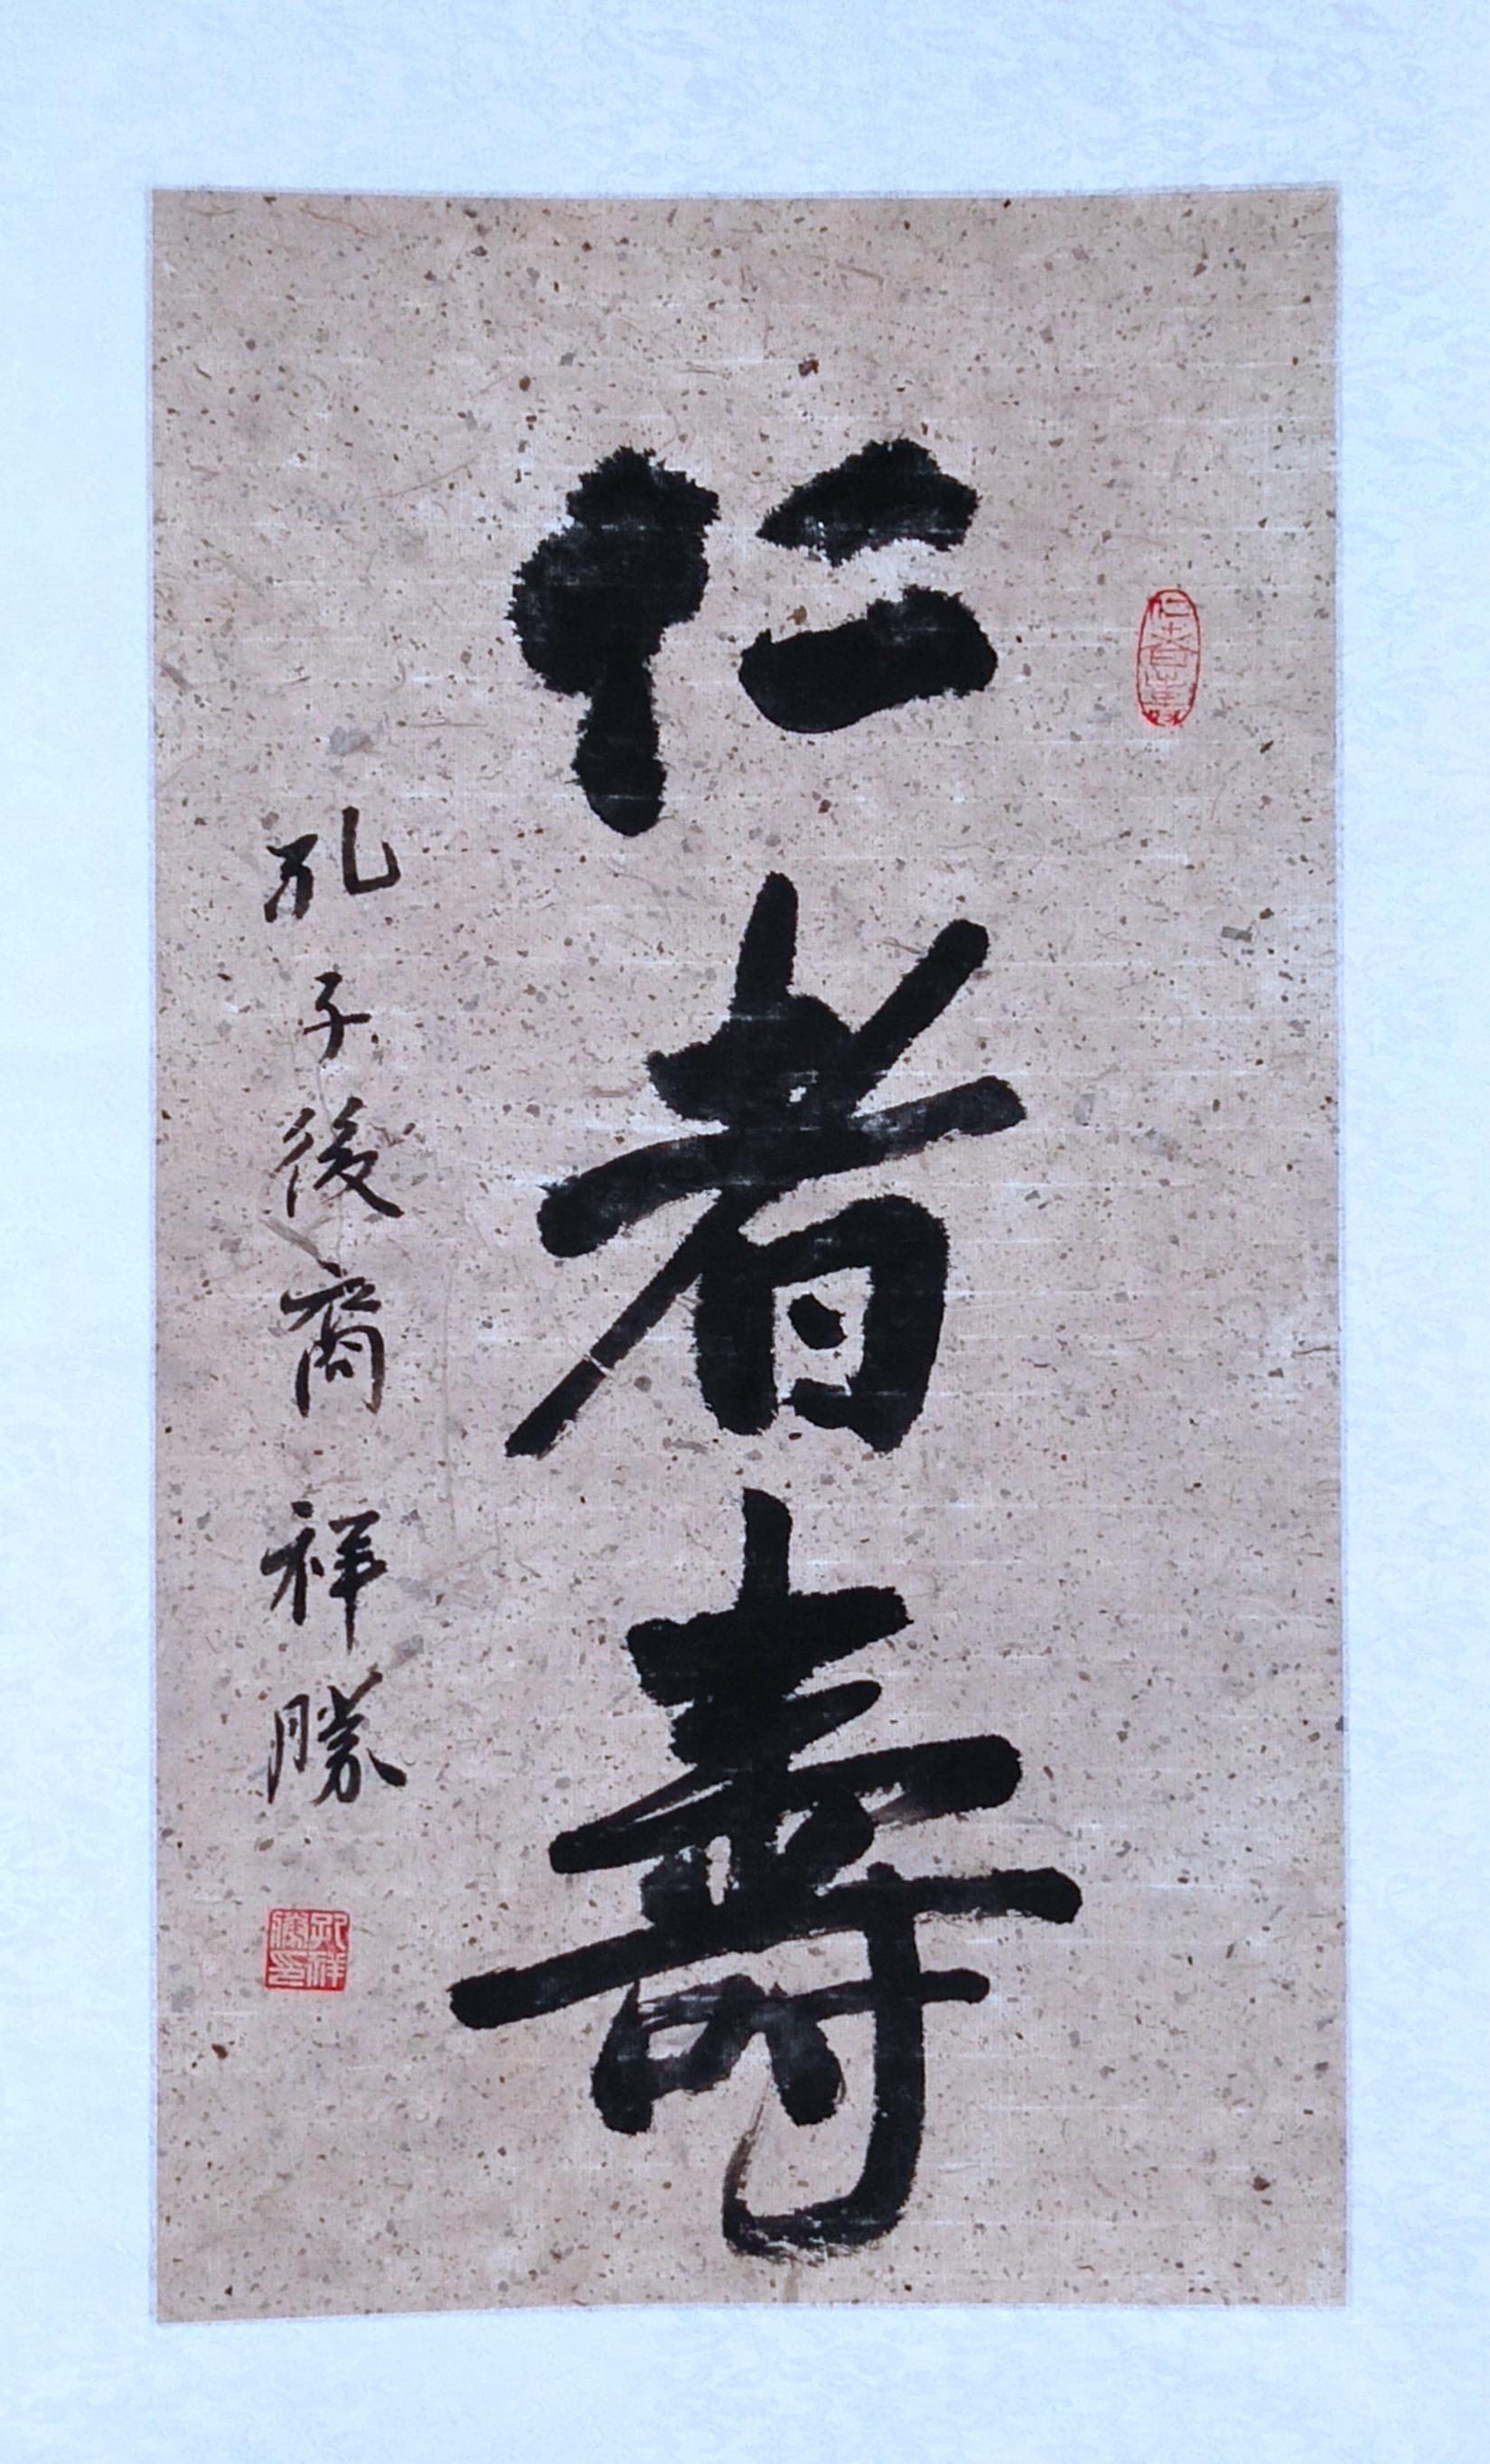 仁者壽
孔子後裔祥勝
孔祥勝印